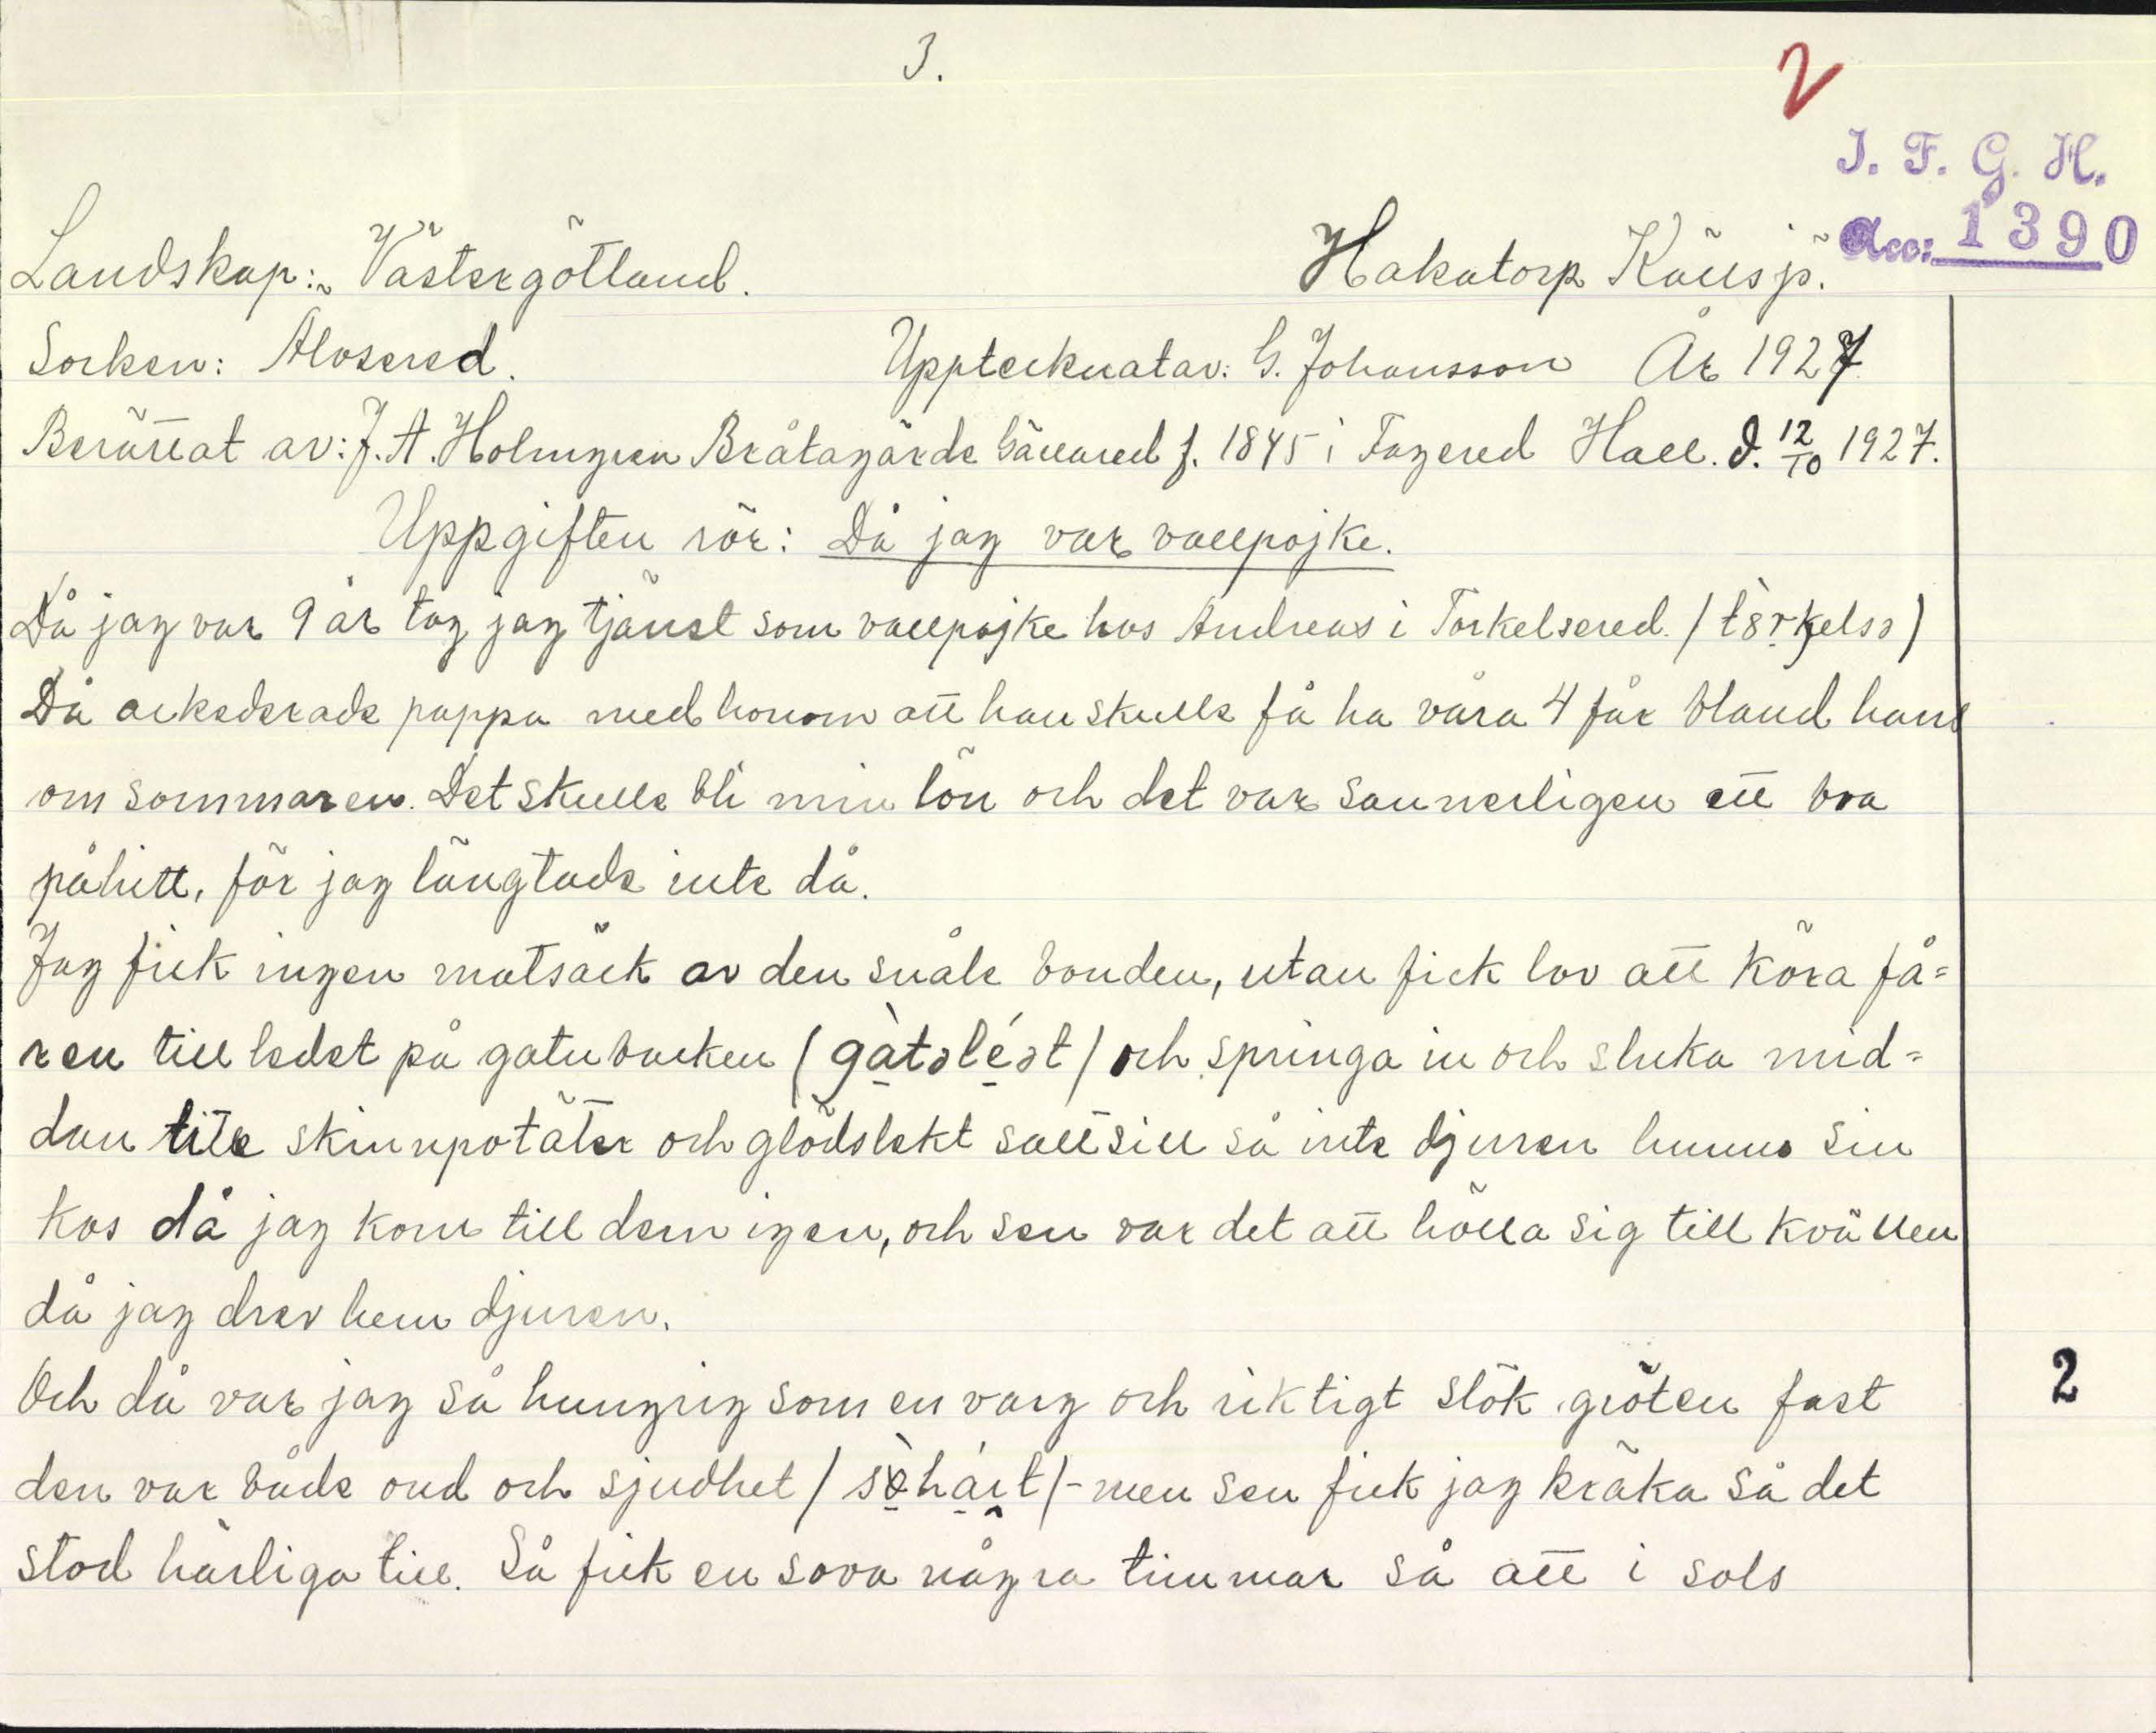 3.
2
I. F. G. H.
Acc: 1390
Landskap: Västergötland. Hakatorp Källsjö.
Socken: Älvsered. Upptecknat av: G. Johansson År 1927
Berättat av: J. A. Holmgren Bråtagärde Gällared f. 1845 i Fagered Hall. d. 12/10 1927.
Uppgiften rör: Då jag var vallpojke.
Då jag var 9 år tog jag tjänst som vallpojke hos Andreas i Torkelsered.
Då ackederade pappa med honom att han skulle få ha våra 4 får bland hans
om sommaren. Det skulle bli min lön och det var sannerligen ett bra
påhitt, för jag längtade inte då.
Jag fick ingen matsäck av den snåle bonden, utan fick lov att köra få=
ren till ledet på gatubacken (gàtəléət) och springa in och sluka mid=
dan till skinnpotäter och glödstekt salt sill så inte djuren hunno sin
kos då jag kom till dem igen, och sen var det att hålla sig till kvällen
då jag drev hem djuren.
Och då var jag så hungrig som en varg och riktigt slök gröten fast
den var både ond och sjudhet / men sen fick jag kräka så det
stod härliga till. Så fick en sova några timmar så att i sols
2